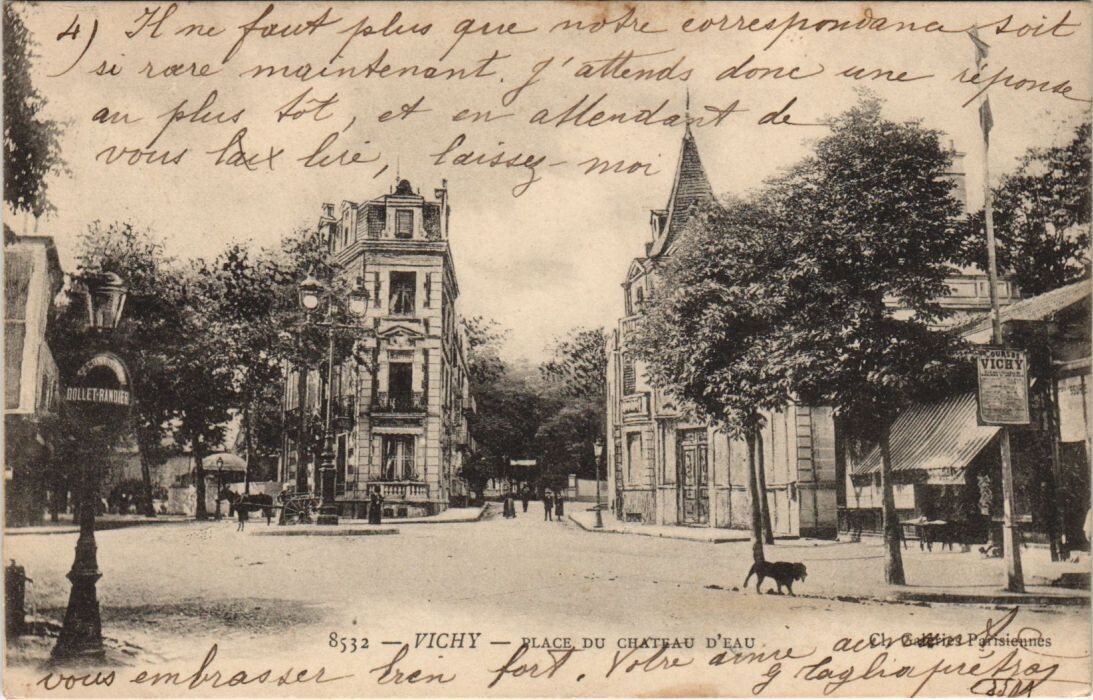 4) Il ne faut plus que notre correspondance soit
si rare maintenant. J'attends donc une réponse
au plus tôt, et en attendant de
vous lire, laissez-moi
DOLLET-RANDIER
VICHY
8532 — VICHY — PLACE DU CHATEAU D'EAU
Galeries Parisiennes
vous embrasser bien fort. Votre amie